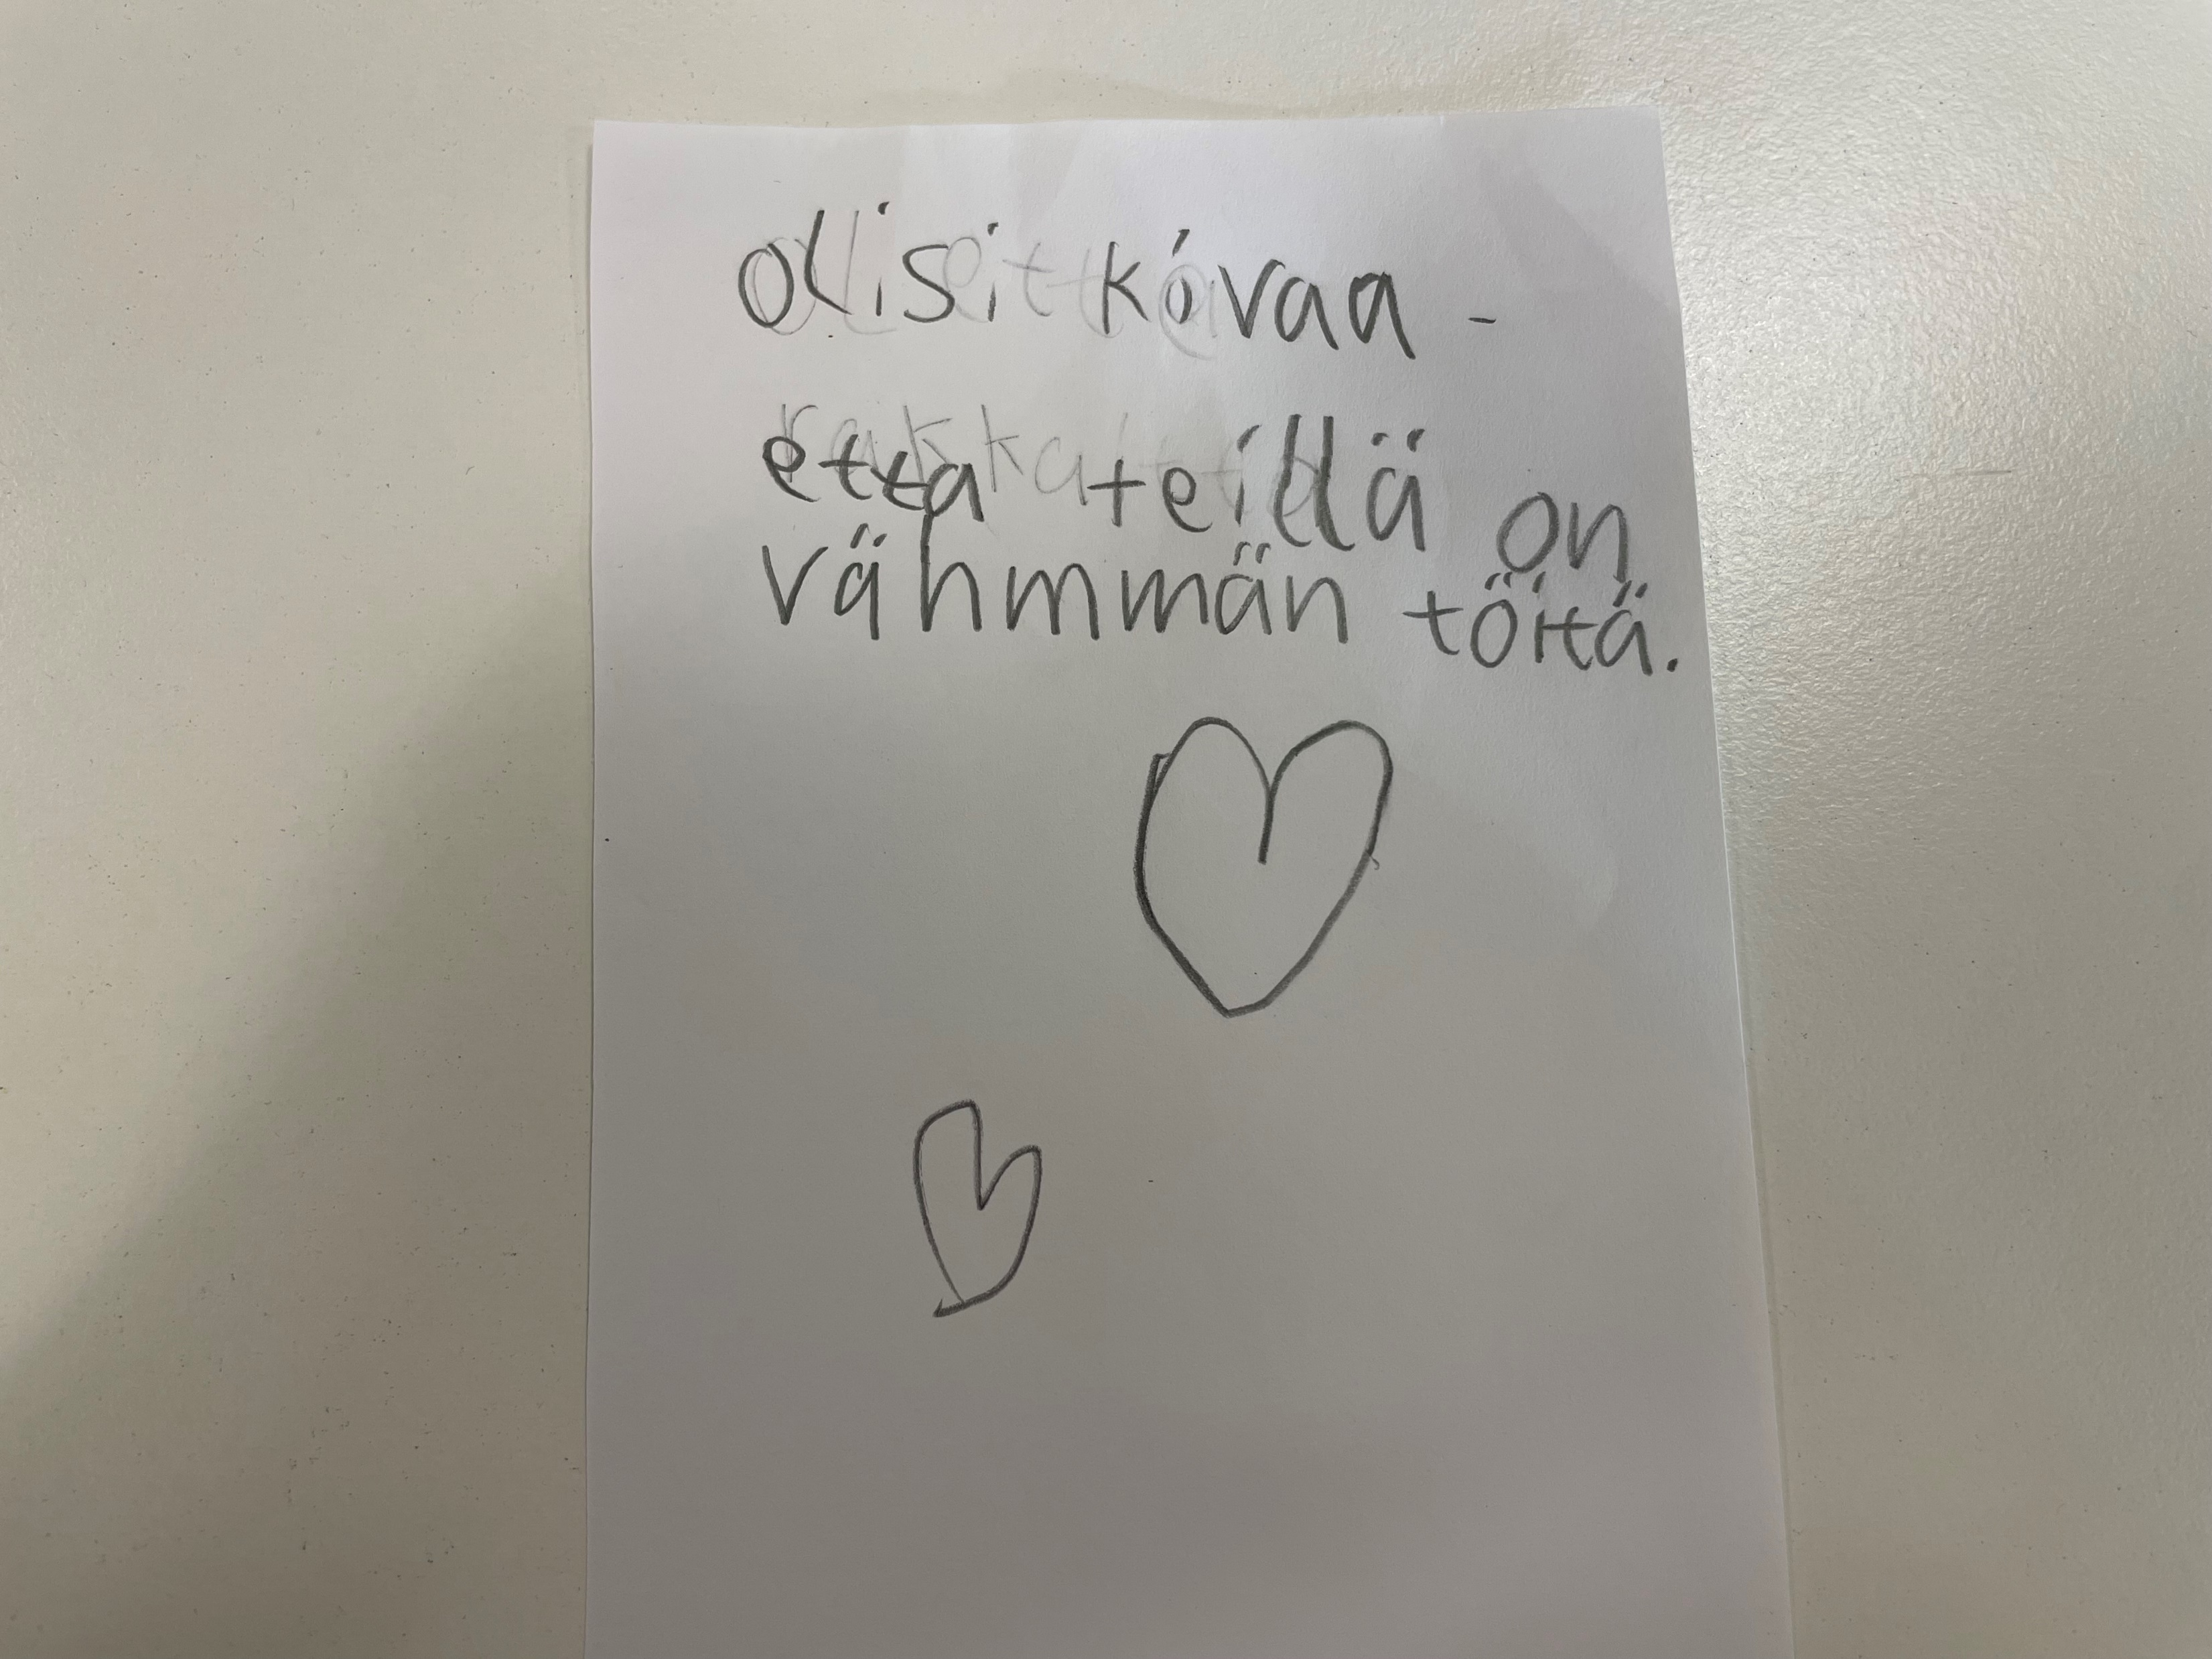 olisi kovaa -
etta teillä on
vähmmän töitä.